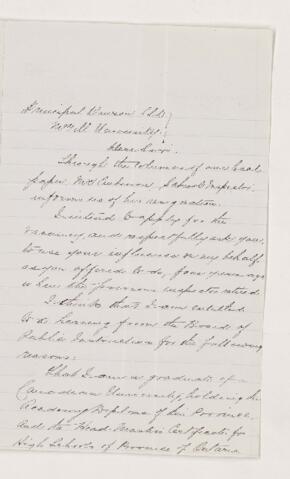 Principal Dawson LLD
McGill University
Dear Sir:
Through the columns of our local
paper, Mr School Inspector
informs us of his resignation.
I intend to apply for the
vacancy, and respectfully ask you,
to use your influence on my behalf
as you offered to do, four years ago
when the former inspector retired.
I think that I am entitled
to a hearing from the Board of
Public Instruction for the following
reasons:
That I am a graduate of a
Canadian University, holding the
Academy Diploma of this Province,
and the Head Master Certificate for
High Schools of Province of Ontario